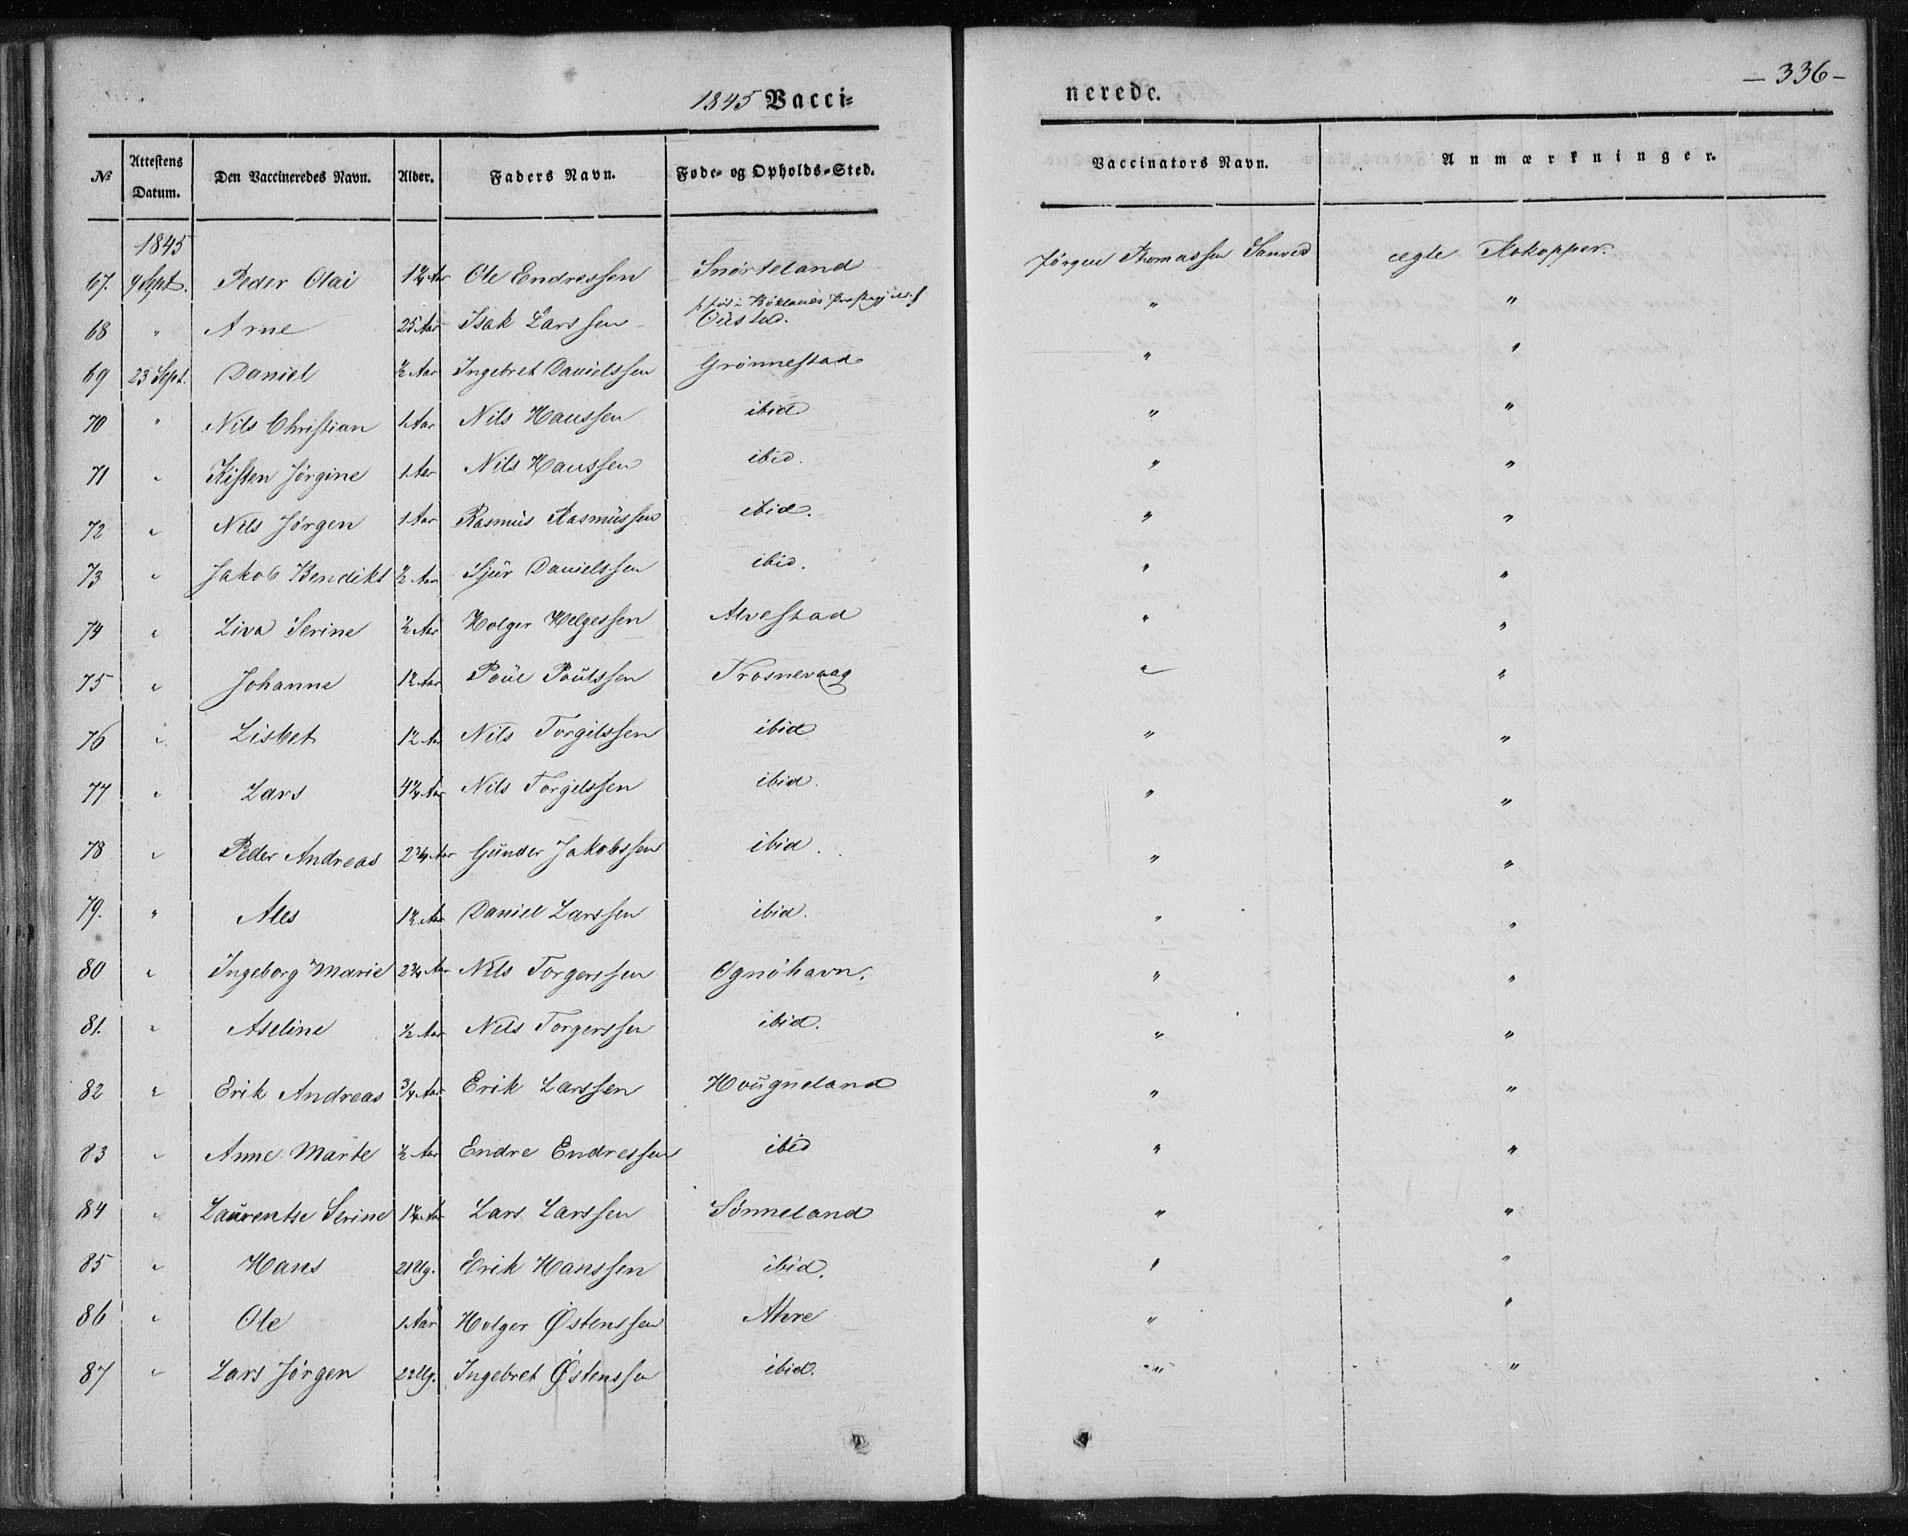 1845 Vacci=
nerede.
— 336 —
No Attestens Datum. Den Vaccineredes Navn. Alder. Faders Navn. Føde- og Opholds-Sted. Vaccinators Navn. Anmærkninger.
1845
67. 9 Sept. Peder Olai 1¼ Aar Ole Endressen Snørteland Jørgen Thomassen Sanved ægte Kokopper.
68 " Arne 25 Aar Isak Larssen Ousted. " "
69 23 Sept. Daniel ½ Aar Ingebret Danielssen Grønnestad " "
70 " Nils Christian 1 Aar Nils Hanssen ibid " "
71 " Kisten Jørgine 1 Aar Nils Hanssen ibid. " "
72 " Nils Jørgen 1 Aar Rasmus Rasmussen ibid. " "
73 " Jakob Bendikt ½ Aar Sjur Danielssen ibid. " "
74 " Liva Serine ½ Aar Holger Helgessen Alvestad " "
75 " Johanne 1½ Aar Poul Poulssen Trosnevaag " "
76 " Lisbet 1½ Aar Nils Torgilssen ibid " "
77 " Lars 4¼ Aar Nils Torgilssen ibid. " "
78 " Peder Andreas 2¾ Aar Gunder Jakobssen ibid. " "
79. " Ales 1½ Aar Daniel Larssen ibid. " "
80 " Ingeborg Marie 2¾ Aar Nils Torgerssen Ognøhavn. " "
81. " Aseline ½ Aar Nils Torgerssen ibid. " "
82 " Erik Andreas ¾ Aar Erik Larssen Hougneland " "
83 " Anne Marte ½ Aar Endre Endressen ibid " "
84 " Laurentse Serine 1¼ Aar Lars Larssen Sønneland " "
85 " Hans 21 Ug. Erik Hanssen ibid. " "
86 " Ole 1 Aar Holger Østenssen Ahre " "
87 " Lars Jørgen 22 Ug. Ingebret Østenssen ibid. " "